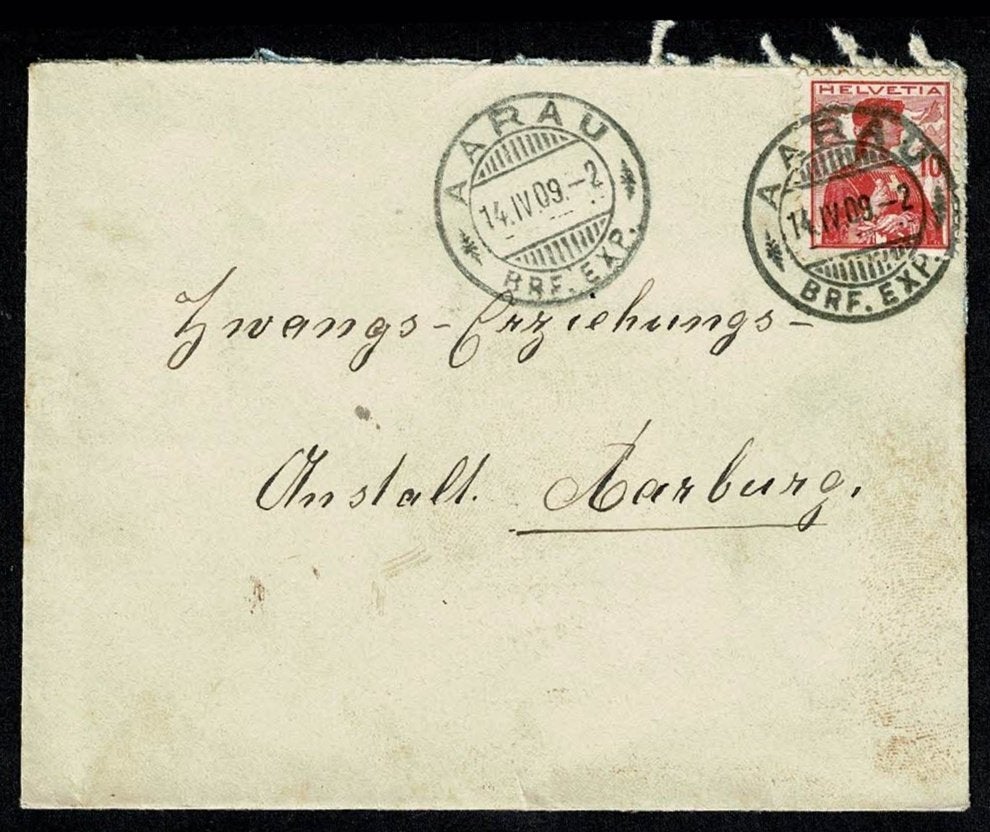 AARAU
14.IV.09.–2
BRF. EXP.
HELVETIA
10
AARAU
14.IV.09.–2
BRF. EXP.
Zwangs-Erziehungs-
Anstalt. Aarburg.